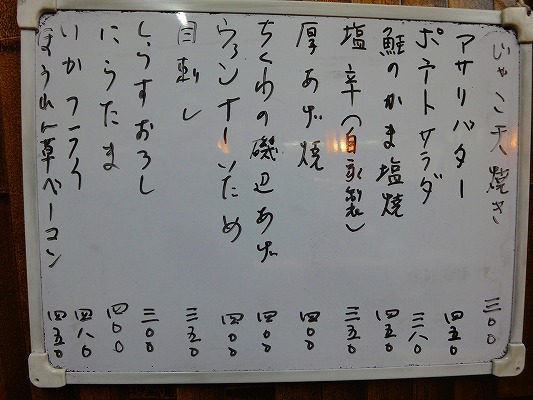 じゃこ天焼き 三〇〇
アサリバター 四五〇
ポテトサラダ 三八〇
鮭のかま塩焼 四五〇
塩辛(自家製) 三五〇
厚あげ焼 四〇〇
ちくわの磯辺あげ 四〇〇
ウインナーいため 四〇〇
目刺し 三五〇
しらすおろし 三〇〇
にらたま 四〇〇
いかフライ 四八〇
ほうれん草ベーコン 四五〇